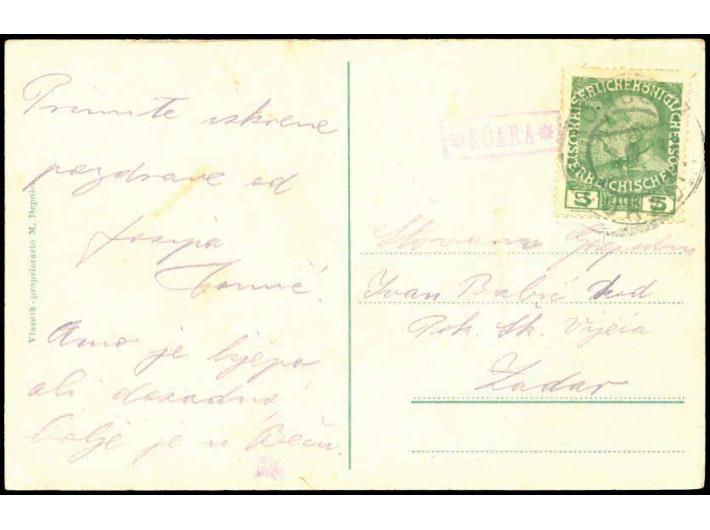 Primite iskrene
pozdrave od
Josipa
Tomić.
Amo je lijepo
ali dosadno
bolje je u Beču.
Vlasnik - proprietario M. Depolo
EĆARA
KAISERLICHE KÖNIGLICHE ÖSTERREICHISCHE POST
1908
5 HELLER 5
Štovani Gospodin
Ivan Babić kod
Pok. Šk. Vijeća
Zadar